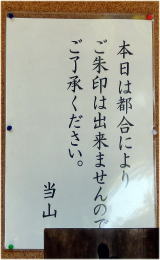 本日は都合により
ご朱印は出来ませんので
ご了承ください。
当山